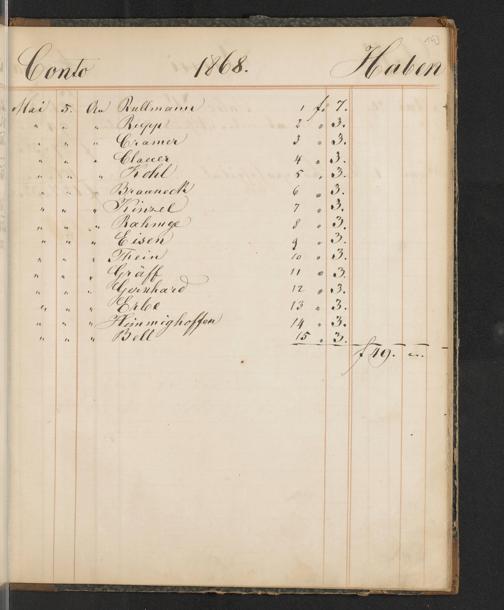 Conto 1868. Haben
Mai 5. An Rullmann 1 f. 7.
" " " Rupp 2 " 3.
" " " Cramer 3 " 3.
" " " Clauer 4 " 3.
" " " Kohl 5 " 3.
" " " Brauneck 6 " 3.
" " " Kinzel 7 " 3.
" " " Rahmge 8 " 3.
" " " Eisen 9 " 3.
" " " Thein 10 " 3.
" " " Gräff 11 " 3.
" " " Gerhard 12 " 3.
" " " Erbe 13 " 3.
" " " Himmighoffen 14 " 3.
" " " Bell 15 " 3.
f 49. "